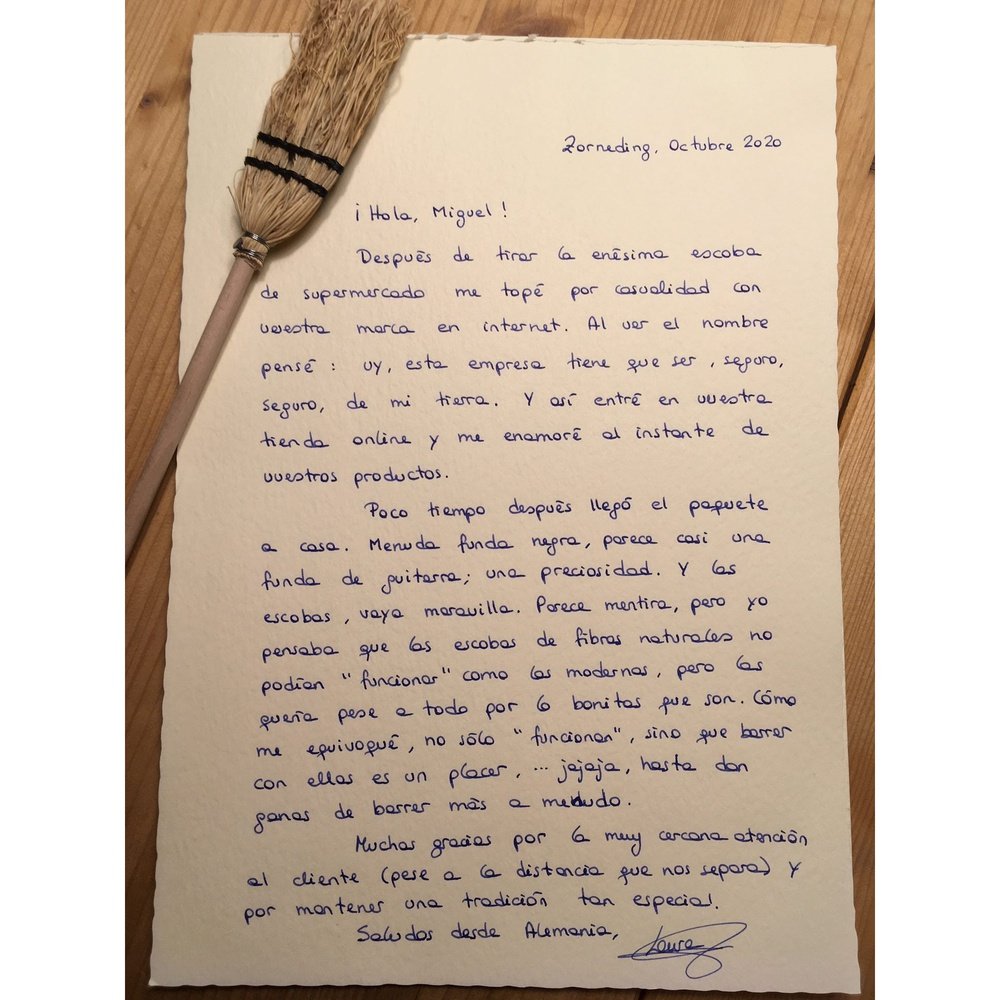 Zorneding, Octubre 2020
¡Hola, Miguel!
Después de tirar la enésima escoba
de supermercado me topé por casualidad con
vuestra marca en internet. Al ver el nombre
pensé: uy, esta empresa tiene que ser, seguro,
seguro, de mi tierra. Y así entré en vuestra
tienda online y me enamoré al instante de
vuestros productos.
Poco tiempo después llegó el paquete
a casa. Menuda funda negra, parece casi una
funda de guitarra; una preciosidad. Y las
escobas, vaya maravilla. Parece mentira, pero yo
pensaba que las escobas de fibras naturales no
podían "funcionar" como las modernas, pero las
quería pese a todo por lo bonitas que son. Cómo
me equivoqué, no sólo "funcionan", sino que barrer
con ellas es un placer, ... jajaja, hasta dan
ganas de barrer más a menudo.
Muchas gracias por la muy cercana atención
al cliente (pese a la distancia que nos separa) y
por mantener una tradición tan especial.
Saludos desde Alemania,
Laura